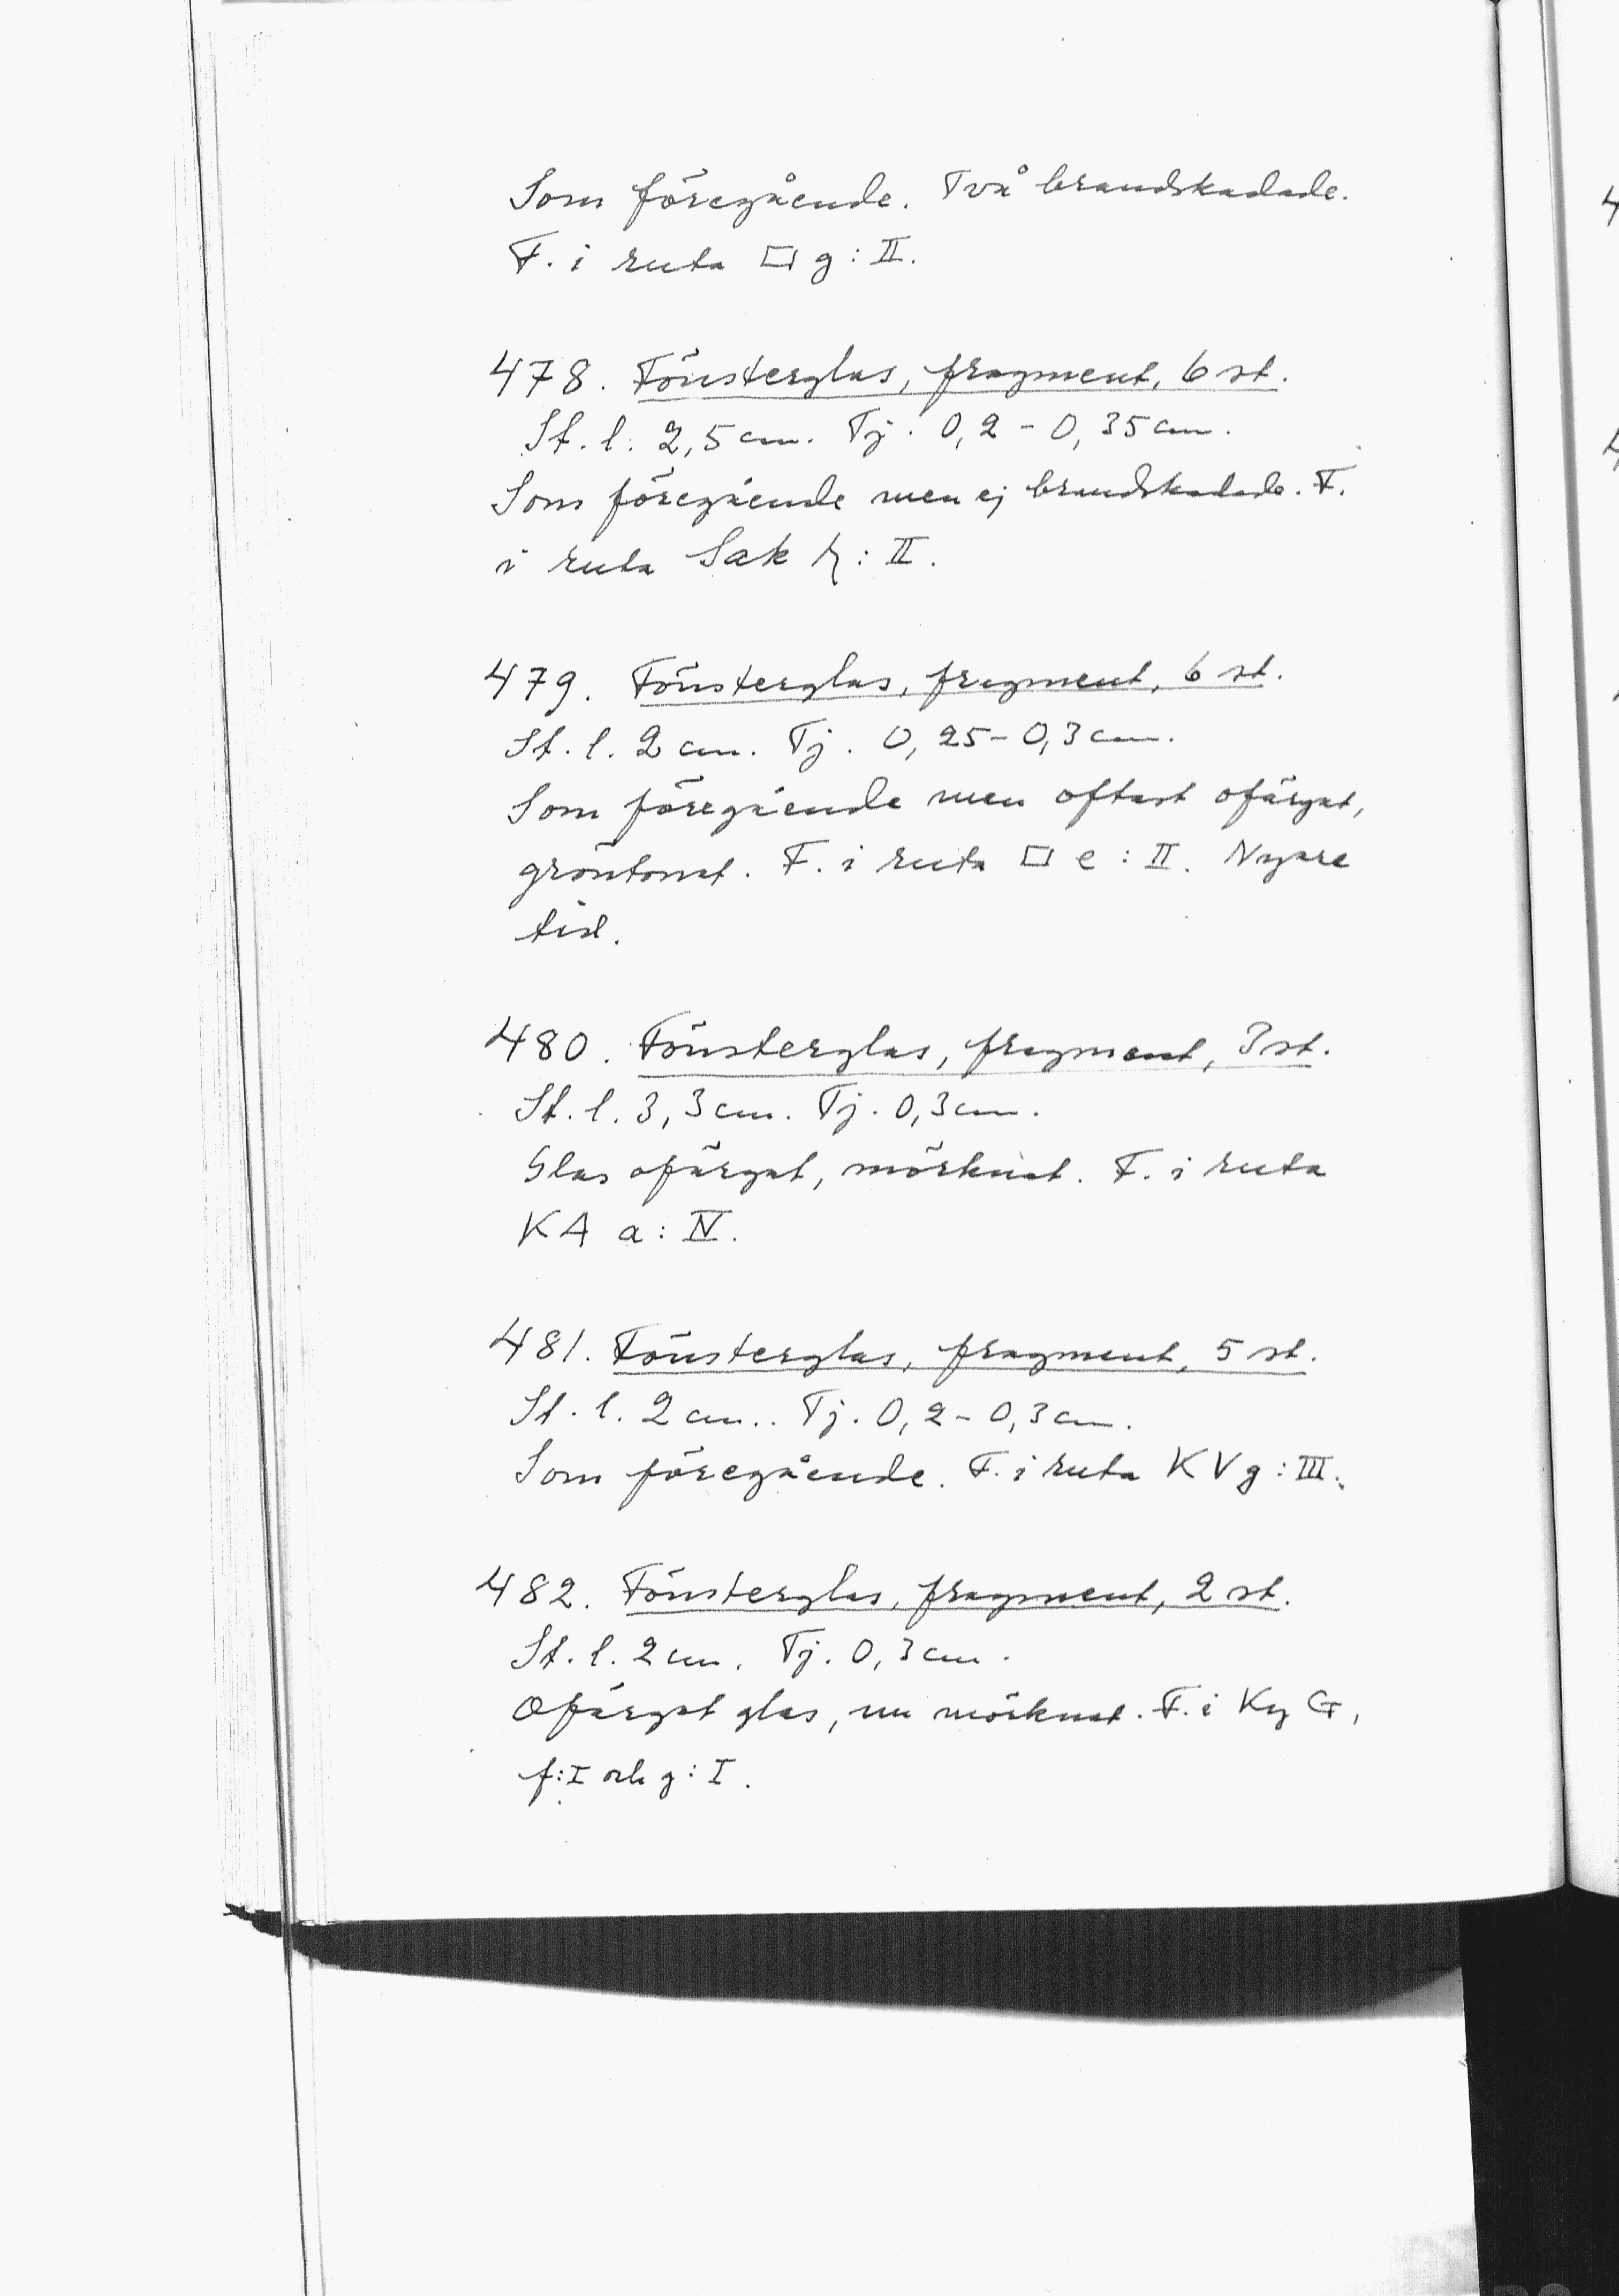 Som föregående. Två brandskadade.
F. i ruta □ g : II.
478. Fönsterglas, fragment, 6 st.
St. l. 2,5 cm. Tj. 0,2 - 0,35 cm.
Som föregående men ej brandskadade. F.
i ruta Sak h : II.
479. Fönsterglas, fragment, 6 st.
St. l. 2 cm. Tj. 0,25 - 0,3 cm.
Som föregående men oftast ofärgat,
gröntonat. F. i ruta □ e : II. Nyare
tid.
480. Fönsterglas, fragment, 3 st.
St. l. 3,3 cm. Tj. 0,3 cm.
Glas ofärgat, mörknat. F. i ruta
KA a : IV.
481. Fönsterglas, fragment, 5 st.
St. l. 2 cm. Tj. 0,2 - 0,3 cm.
Som föregående. F. i ruta KV g : III.
482. Fönsterglas, fragment, 2 st.
St. l. 2 cm. Tj. 0,3 cm.
Ofärgat glas, nu mörknat. F. i Ky G,
f : I och g : I.